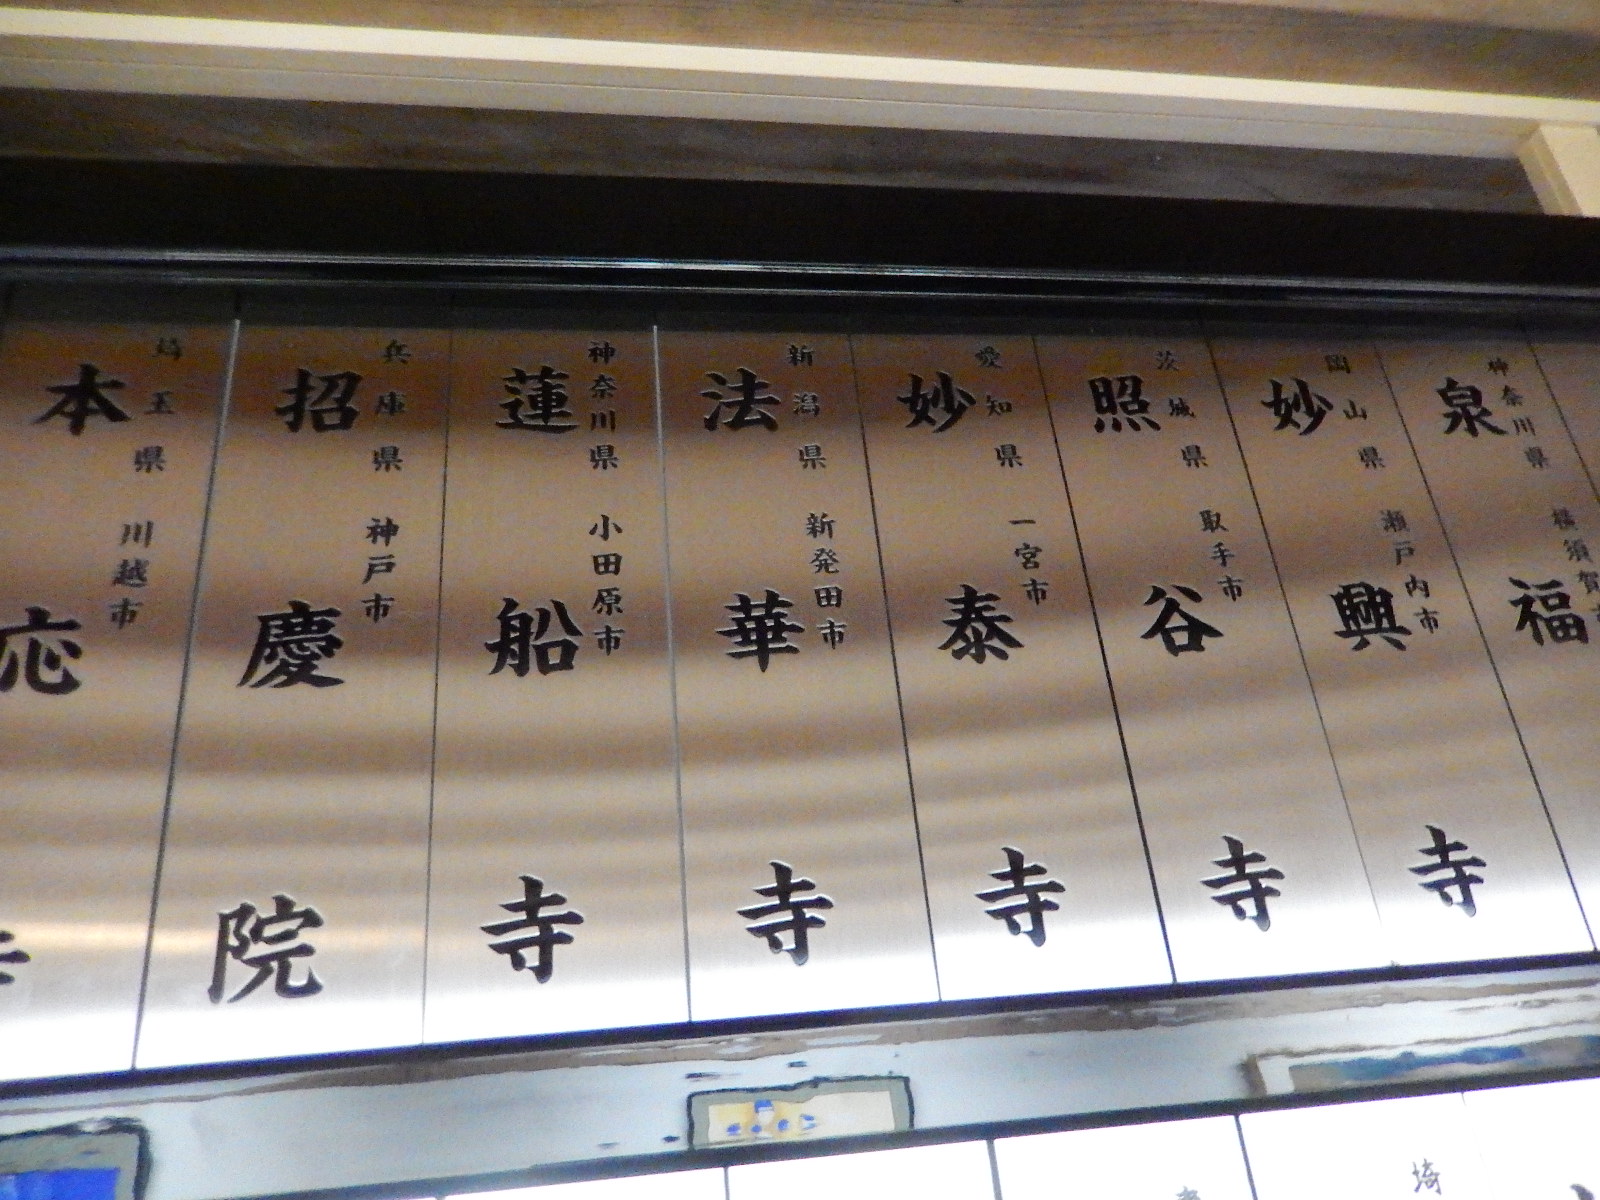 神奈川県 横須賀市
泉福
岡山県 瀬戸内市
妙興寺
茨城県 取手市
照谷寺
愛知県 一宮市
妙泰寺
新潟県 新発田市
法華寺
神奈川県 小田原市
蓮船寺
兵庫県 神戸市
招慶院
埼玉県 川越市
本応寺
埼